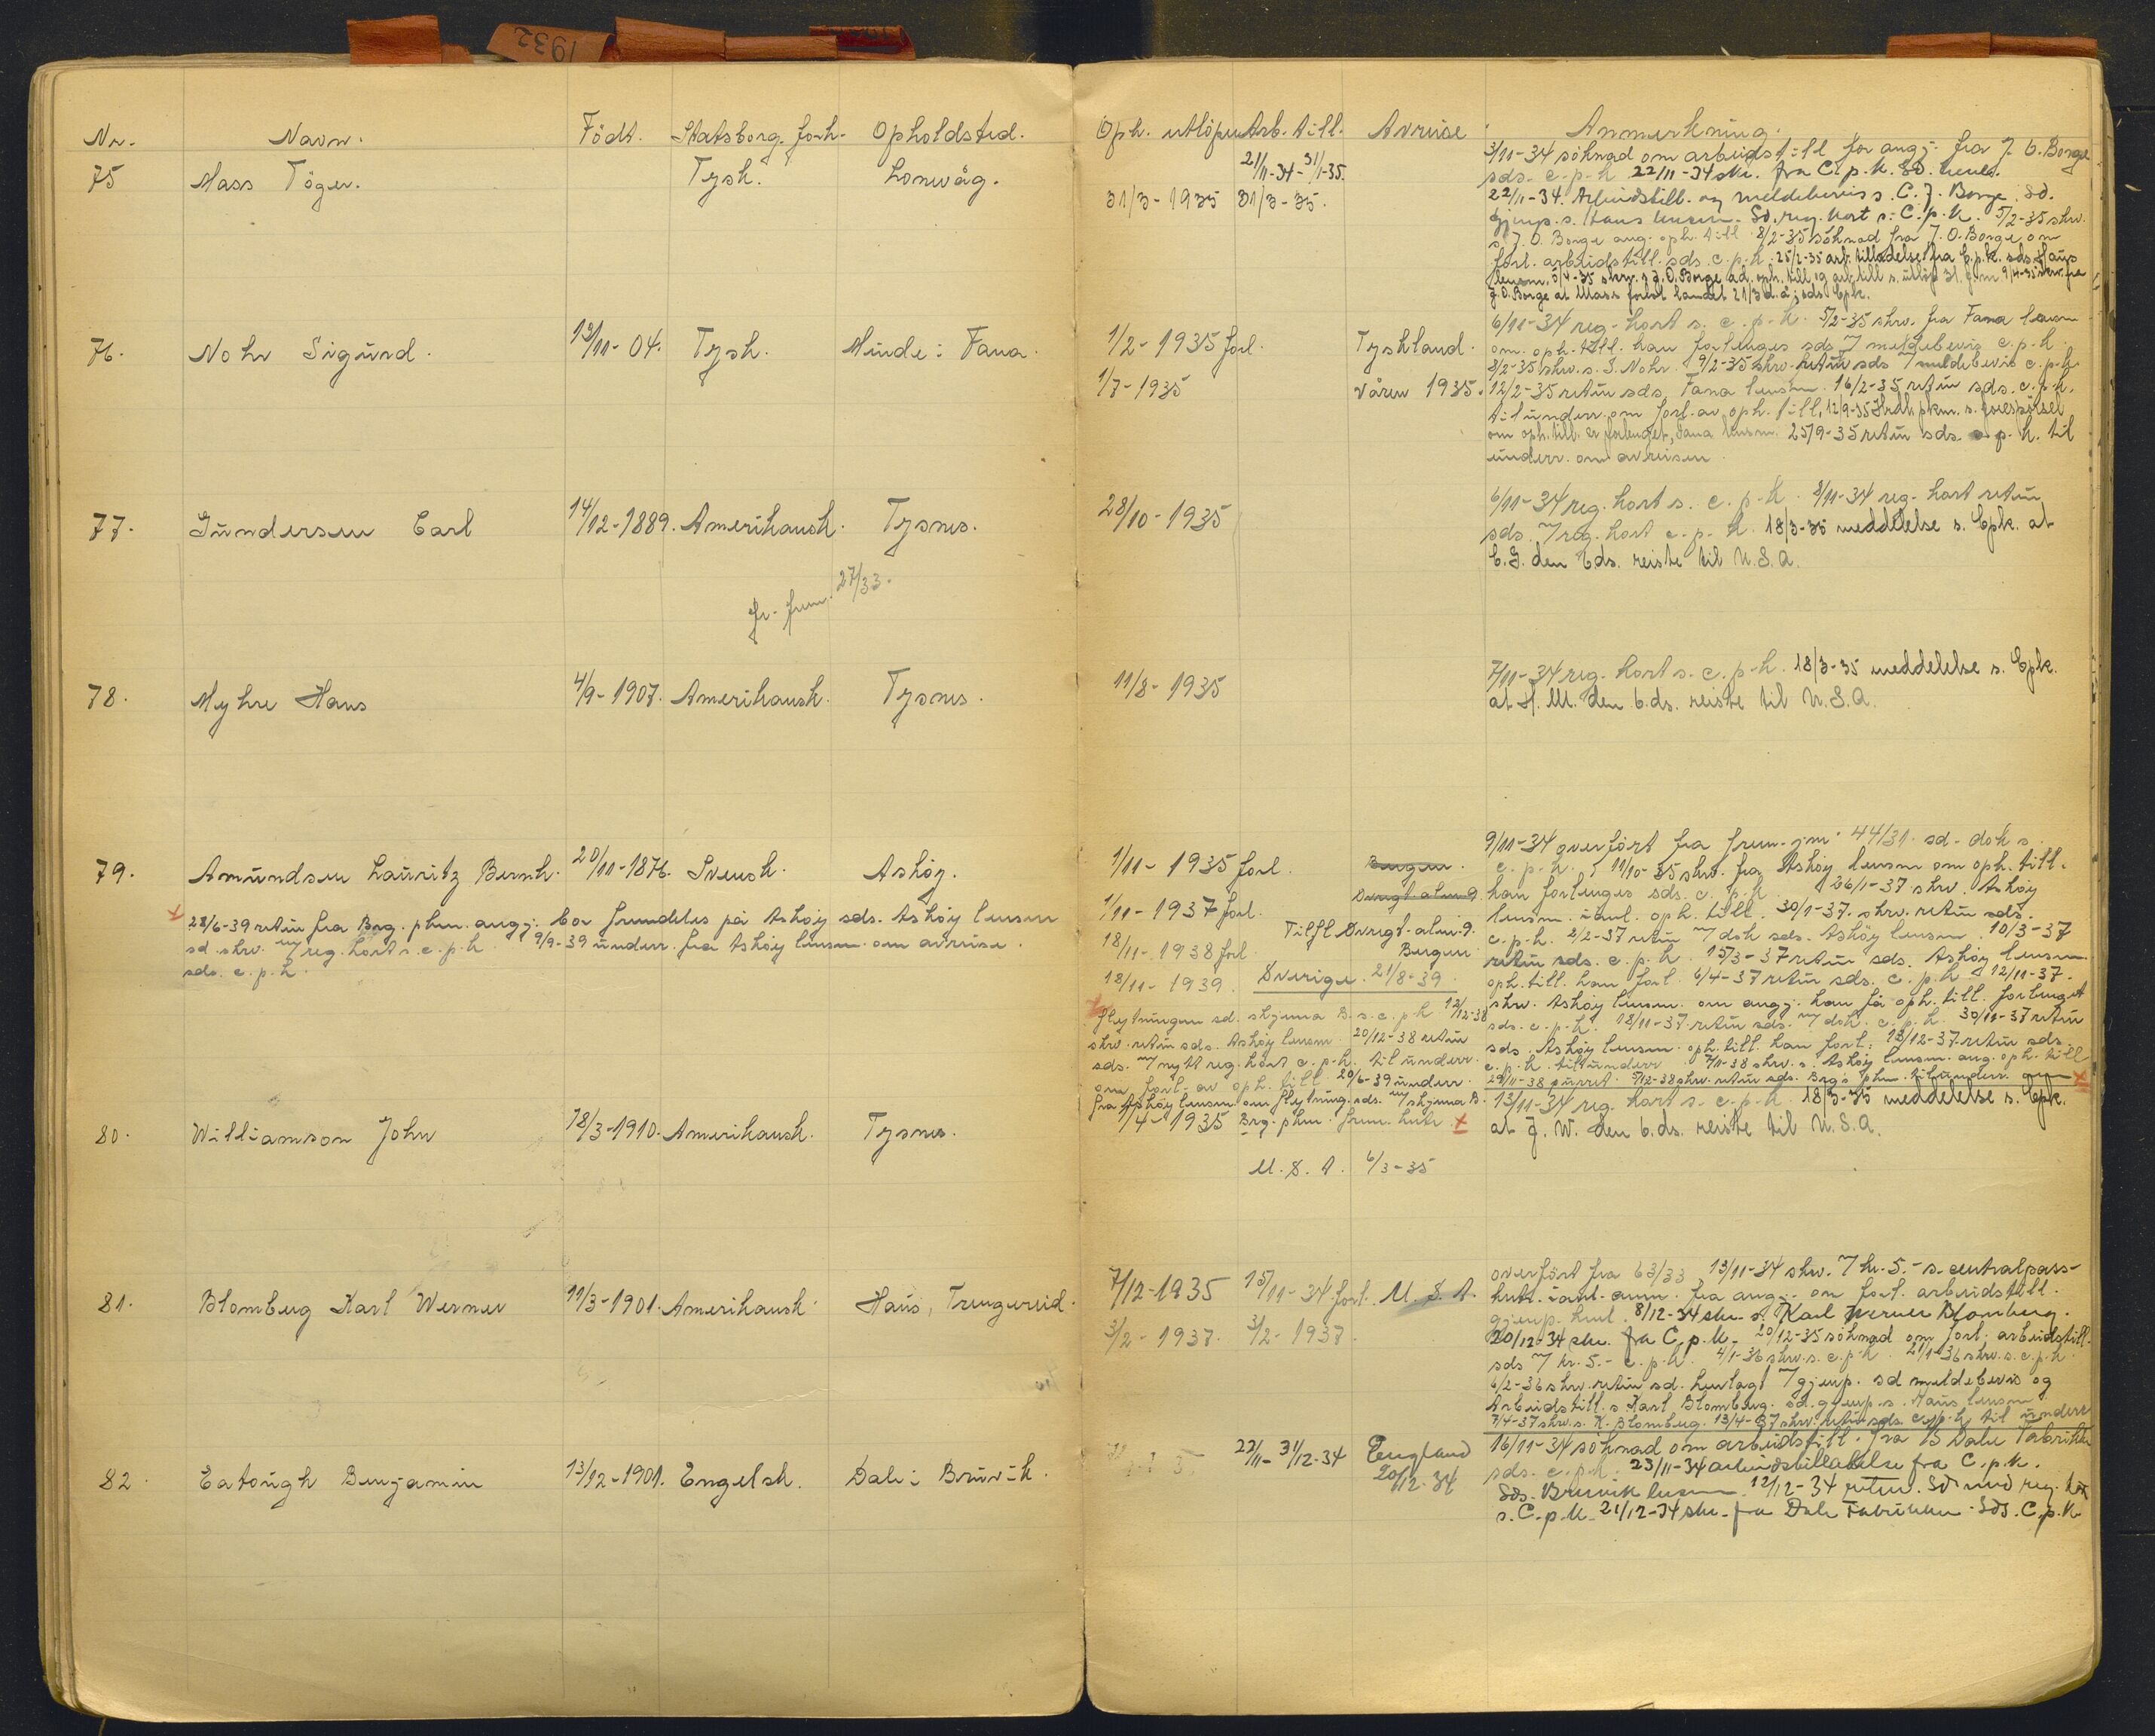 1932
Nr. Navn. Födt. Statsborg. forh. Opholdsted.
75 Mass Töger. Tysk. Lonevåg.
76. Nohr Sigurd. 13/11-04. Tysk. Minde i Fana.
77. Gundersen Carl 14/12-1889. Amerikansk. Tysnes.
27/33.
78. Myhre Hans 4/9-1907. Amerikansk. Tysnes.
79. Amundsen Lauritz Bernh. 20/11-1876. Svensk. Askøy.
28/6-39 retur fra Brg. pkm. angj. bor fremdeles på Askøy sds. Askøy lensm
sd. skrv. m/ reg. kort s. c.p.k. 9/9-39 underr. fra Askøy lensm. om avreise.
sds. c.p.k.
80. Williamson John 18/3-1910. Amerikansk. Tysnes.
81. Blomberg Karl Werner 11/3-1901. Amerikansk. Haus, Trengereid.
82. Eatough Benjamin 13/12-1901. Engelsk. Dale i Bruvik.
Oph. utlöper Arb. till. Avreise Anmerkning.
21/11-34-31/1-35.
31/3-1935 31/3-35.
3/11-34 söknad om arbeidstill for angj. fra J. O. Borge
sds. c.p.k. 22/11-34 skr. fra C.p.k. Sd.
22/11-34. Arbeidstill. og meldebevis s. C. J. Borge. Sd.
gjenp. s. Haus lensm. Sd. reg. kort s. C.p.k. 5/2-35 skrv.
s. J. O. Borge ang. oph. till 8/2-35 söknad fra J. O. Borge om
forl. arbeidstill. sds. c.p.k. 25/2-35 arb. tilladelse fra C.p.k. sds. Haus
lensm. 5/4-35 skrv. s. J. O. Borge ad. oph. till og arb. till s. utlöp 31. f.m. 9/4-35 skrv. fra
J. O. Borge at Mass forlot landet 21/3 d. å. sds Cpk.
1/2-1935 forl. Tyskland.
1/7-1935 våren 1935.
6/11-34 reg. kort s. c.p.k. 5/2-35 skrv. fra Fana lensm
om oph. till. kan forlenges sds 7 meldebevis c.p.k.
8/2-35 skrv. s. S. Nohr. 9/2-35 skrv. retur sds 7 meldebevis c.p.k.
12/2-35 retur sds. Fana lensm. 16/2-35 retur sds. c.p.k.
til underr. om forl. av oph. till. 12/9-35 Hrdl. pkm. s. forespörsel
om oph. till. er forlenget, Fana lensm. 25/9-35 retur sds. c.p.k. til
underr. om avreisen.
28/10-1935
6/11-34 reg. kort s. c.p.k. 8/11-34 reg. kort retur
sds. 7 reg. kort c.p.k. 18/3-35 meddelelse s. Cpk. at
C. G. den 6 ds. reiste til U.S.A.
11/8-1935
7/11-34 reg. kort s. c.p.k. 18/3-35 meddelelse s. Cpk.
at H. M. den 6. ds. reiste til U.S.A.
1/11-1935 forl. Bergen.
1/11-1937 forl.
18/11-1938 forl. Bergen
18/11-1939. Sverige. 21/8-39
9/11-34 overfört fra frem. jrn. 44/31. sd. dok s.
c.p.k. 11/10-35 skrv. fra Askøy lensm om oph. till.
kan forlenges sds. c.p.k. 26/1-37 skrv. Askøy
lensm. oph. till. 30/1-37. skrv. retur sds.
c.p.k. 2/2-37 retur 7 dok sds. Askøy lensm. 10/3-37
retur sds. c.p.k. 15/3-37 retur sds. Askøy lensm.
oph. till. kan forl. 6/4-37 retur sds. c.p.k. 12/11-37.
skrv. Askøy lensm. om angj. kan få oph. till. forlenget
sds. c.p.k. 18/11-37. retur sds. 7 dok. c.p.k. 30/11-37 retur
sds. Askøy lensm. oph. till. kan forl. 13/12-37. retur sds.
c.p.k. til underr 7/11-38 skrv. s. Askøy lensm. ang. oph. till
29/11-38 purret. 5/12-38 skrv. retur sds. Brg's pkm. til underr.
flytningen sd. skjema B. s. c.p.k. 12/12-38
skrv. retur sds. Askøy lensm. 20/12-38 retur
sds. 7 nytt reg. kort c.p.k. til underr.
om forl. av oph. till 20/6-39 underr.
fra Askøy lensm. om flytning. sds. m/ skjema B.
1/4-1935 Brg. pkm. frem. kntr.
U.S.A. 6/3-35
13/11-34 reg. kort s. c.p.k. 18/3-35 meddelelse s. Cpk.
at J. W. den 6. ds. reiste til U.S.A.
7/12-1935 15/11-34 forl. U.S.A.
3/2-1937. 3/2-1937.
overfört fra 63/33 13/11-34 skrv. 7 kr. 5.- s. centralpass-
kntr. fra angj. om forl. arbeidstill.
gjenp. 8/12-34 skr. s. Karl Werner Blomberg.
20/12-34 skr. fra C.p.k. 20/12-35 söknad om forl. arbeidstill.
sds 7 kr. 5.- c.p.k. 4/1-36 skrv. s. c.p.k. 21/1-36 skrv. s. c.p.k.
6/2-36 skrv. retur sd. 7 gjenp. sd meldebevis og
Arbeidstill. s Karl Blomberg. sd. gjenp. s. Haus lensm.
7/4-37 skrv. s. K. Blomberg. 13/4-37 skrv. retur sds. c.p.k. til underr
22/11-31/12-34 England
20/12-34
16/11-34 söknad om arbeidstill. fra Dale Fabrikker
sds. c.p.k. 23/11-34 arbeidstilladelse fra C.p.k.
Sds. Bruvik lensm. 12/12-34 retur. Sd med reg. kort
s. C.p.k. 21/12-34 skr. fra Dale Fabrikker. Sds. C.p.k.